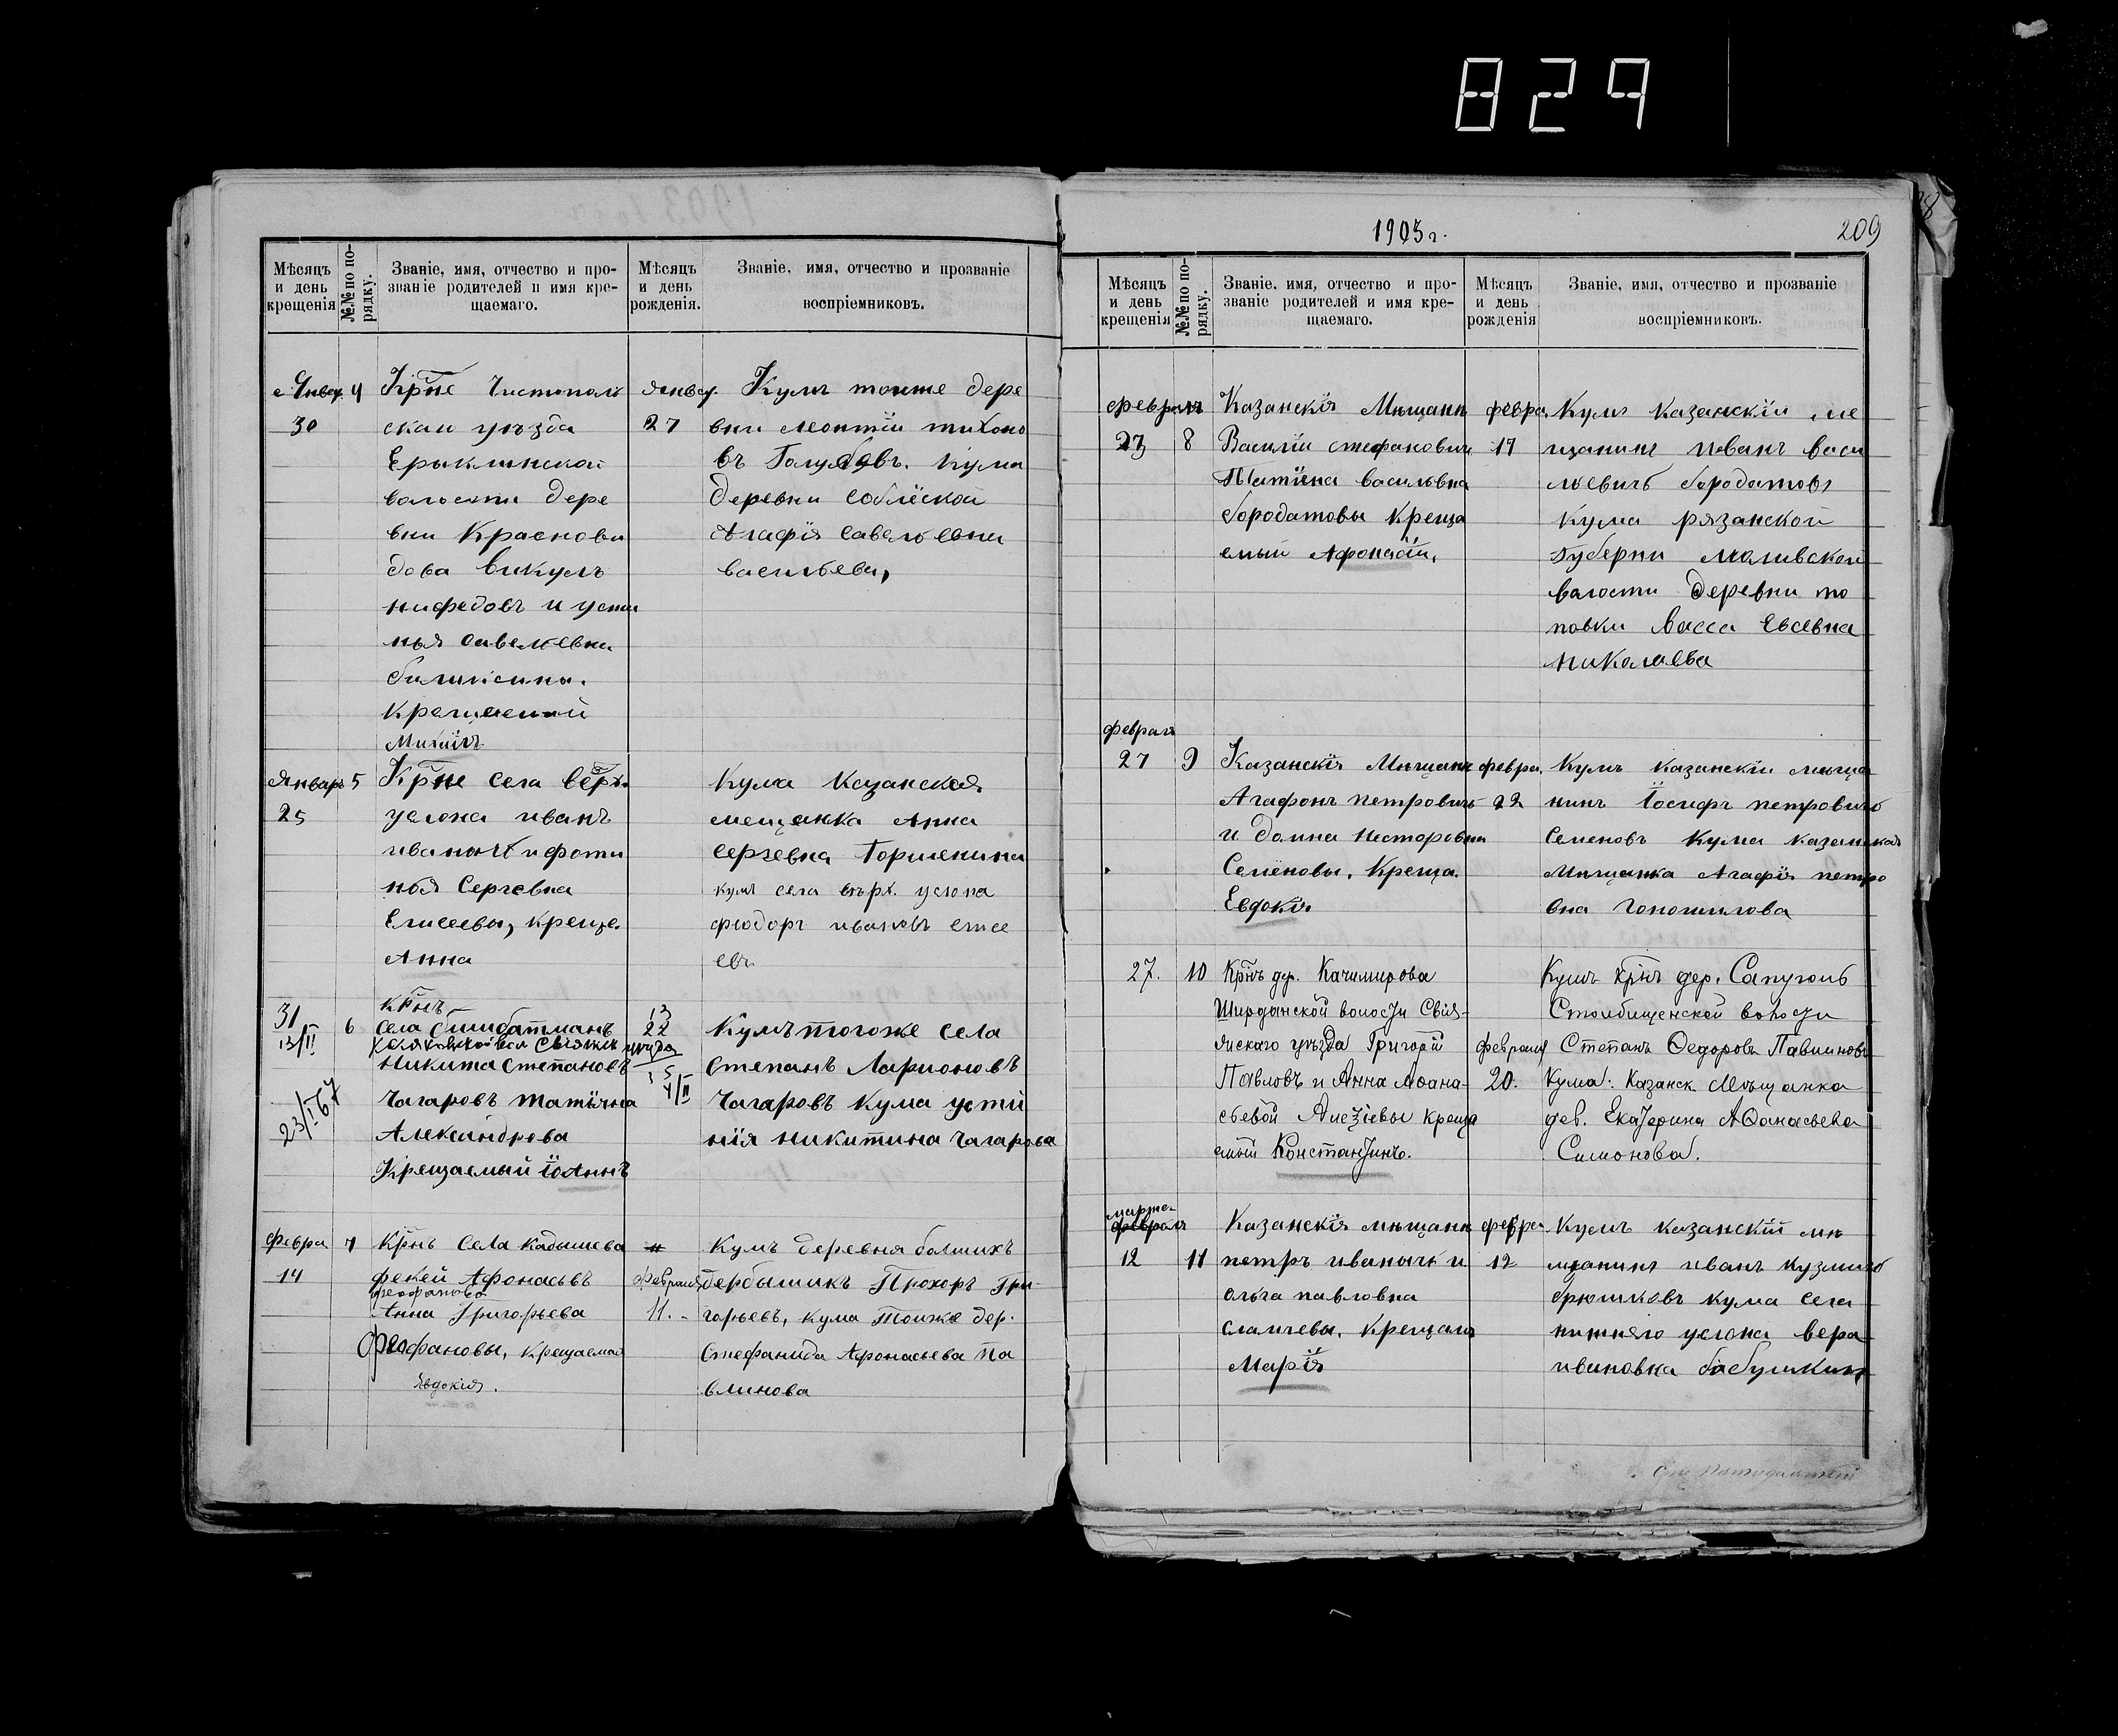 829
1905 г.
209
Мѣсяцъ и день крещенія
№№ по порядку.
Званіе, имя, отчество и про-
званіе родителей и имя кре-
щаемаго.
Мѣсяцъ и день рожденія.
Званіе, имя, отчество и прозваніе
воспріемниковъ.
Январ. 4
30
Крне Чистополь
скаи уѣзда
Ерыклинской
волости дере
вни Краснови
дова Викулъ
нифедовъ и усти
нья савелевна
Крещаемый
Михаилъ
январ.
27
Кумъ тоиже дере
вни леонтіи тихоно
въ Голубовъ. кума
деревни
Агафія савельевна
васильева,
Январь 5
25
Крне села Верх.
услона иванъ
иванычъ и фоти
нья Сергевна
Елисеевы, креще.
Анна
Кума Казанская
мещанка Анна
Сергевна Горшенина
кумъ села вѣрх. услона
фюдоръ ивановъ елисе
евъ
31
13/II
6
23/I 67
крнъ
села
Никита Степановъ
Чагаровъ татіяна
Александрова
Крещаемый іоаннъ
13
22
4/II
Кумъ тогоже села
Степанъ Ларионовъ
Чагаровъ кума усти
нія никитина Чагарова
Февра 7
14
крнъ села кадышева
фекей Афонасьвъ
феофанова
Анна Григорьева
Феофановы, крещаемая
Явдокия.
Февраля
11.
Кумъ деревня болшихъ
дербышикъ Прохоръ Гри-
горьевъ, кума тоиже дер.
Стефанида Афонасьева Па
влинова
Мѣсяцъ и день крещенія
№№ по порядку.
Званіе, имя, отчество и про-
званіе родителей и имя кре-
щаемаго.
Мѣсяцъ и день рожденія
Званіе, имя, отчество и прозваніе
воспріемниковъ.
февраль
23 8
Казанскія Мѣщани
Василіи стефановичъ
Татіена васильвна
бородатовы Креща
емыи Афонасіи.
февра.
17
Кумъ казанскіи ме
щанинъ Иванъ васи
льевичъ бородатовъ
кума рязанской
губерни маливской
валости деревни по
повки Васса Евсевна
николаева
февраль
27 9
Казанскія Мѣщани
Агафонъ петровичъ
и домна несторовна
Семёновы. Креща.
Евдокія
февра.
22
Кумъ казанскіи мѣща
нинъ Іосифъ петровичъ
Семеновъ кума казанская
Мѣщанка Агафія петро
вна Гоношилова
27. 10
Крнъ др. Качимирова
Ширданской волости Свія-
жскаго уѣзда Григорій
Павловъ и Анна Аѳана-
сьевой крещ
емый Константинъ.
февраля
20.
Кумъ крнъ дер. Сапуголь
Столбищенской волости
Степанъ Ѳедоровъ Павлиновъ
Кума: Казанск. Мѣщанка
дев. Екатерина Аѳанасьева
Симонова.
марта
февраль
12 11
Казанскія мѣщани
петръ иванычъ и
ольга павловна
слаичевы. крещаля
Марія
февра
12
Кумъ казанскій мѣ
щанинъ иванъ кузмичъ
брюшковъ кума села
нижняго услона вера
ивановна бабушкина